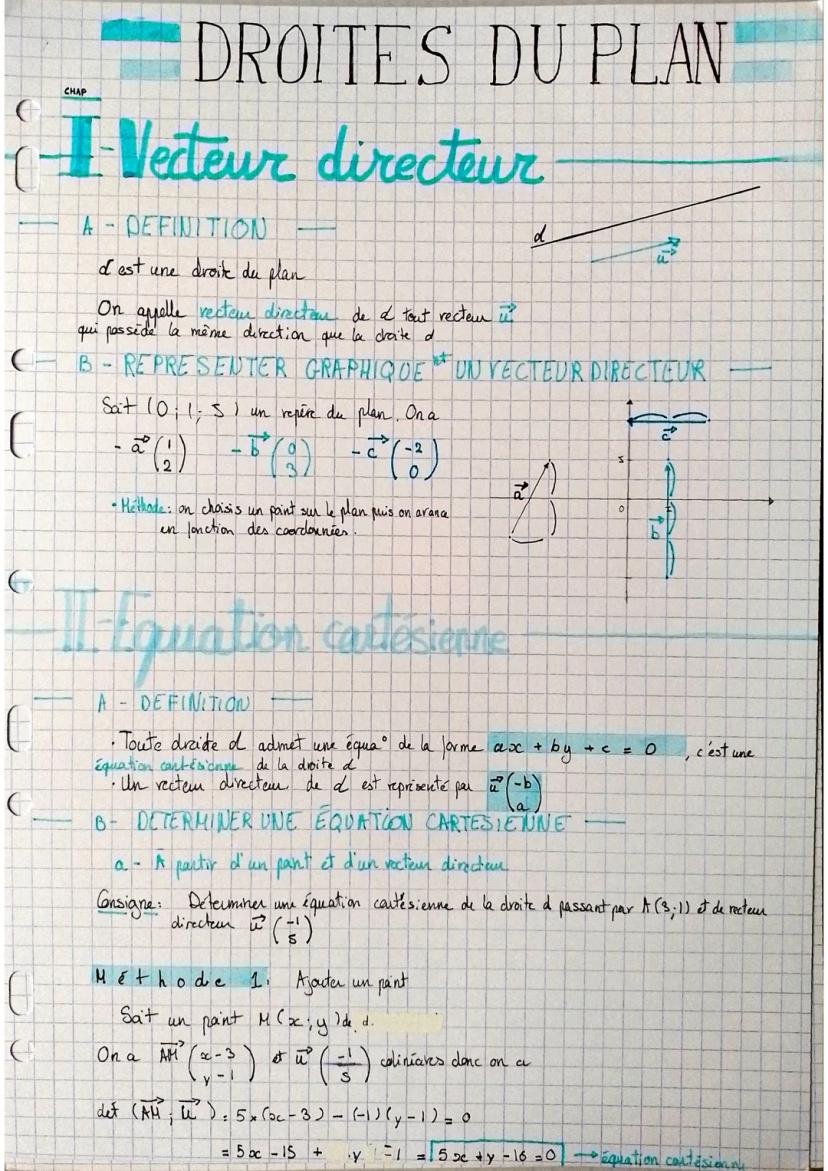 DROITES DU PLAN
CHAP
I - Vecteur directeur
A - DEFINITION
d
u⃗
d est une droite du plan
On appelle vecteur directeur de d tout vecteur u⃗
qui possède la même direction que la droite d
B - REPRESENTER GRAPHIQUEᵐᵗ UN VECTEUR DIRECTEUR
Soit (O; I; J) un repère du plan. On a
- a⃗ (1 2) - b⃗ (0 3) - c⃗ (-2 0)
c⃗
J
a⃗
0
b⃗
• Méthode: on choisis un point sur le plan puis on avance
en fonction des coordonnées.
II - Equation cartésienne
A - DEFINITION
• Toute droite d admet une équa° de la forme ax + by + c = 0, c'est une
équation cartésienne de la droite d
• Un vecteur directeur de d est représenté par u⃗ (-b a)
B- DETERMINER UNE ÉQUATION CARTESIENNE
a - A partir d'un point et d'un vecteur directeur
Consigne: Déterminer une équation cartésienne de la droite d passant par A(3;1) et de vecteur
directeur u⃗ (-1 5)
Méthode 1: Ajouter un point
Soit un point M(x;y) de d.
On a AM⃗ (x-3 y-1) et u⃗ (-1 5) coliniaires donc on a
det (AM⃗; u⃗) = 5×(x-3) - (-1)(y-1) = 0
= 5x - 15 + y - 1 = 5x + y - 16 = 0 → équation cartésienne